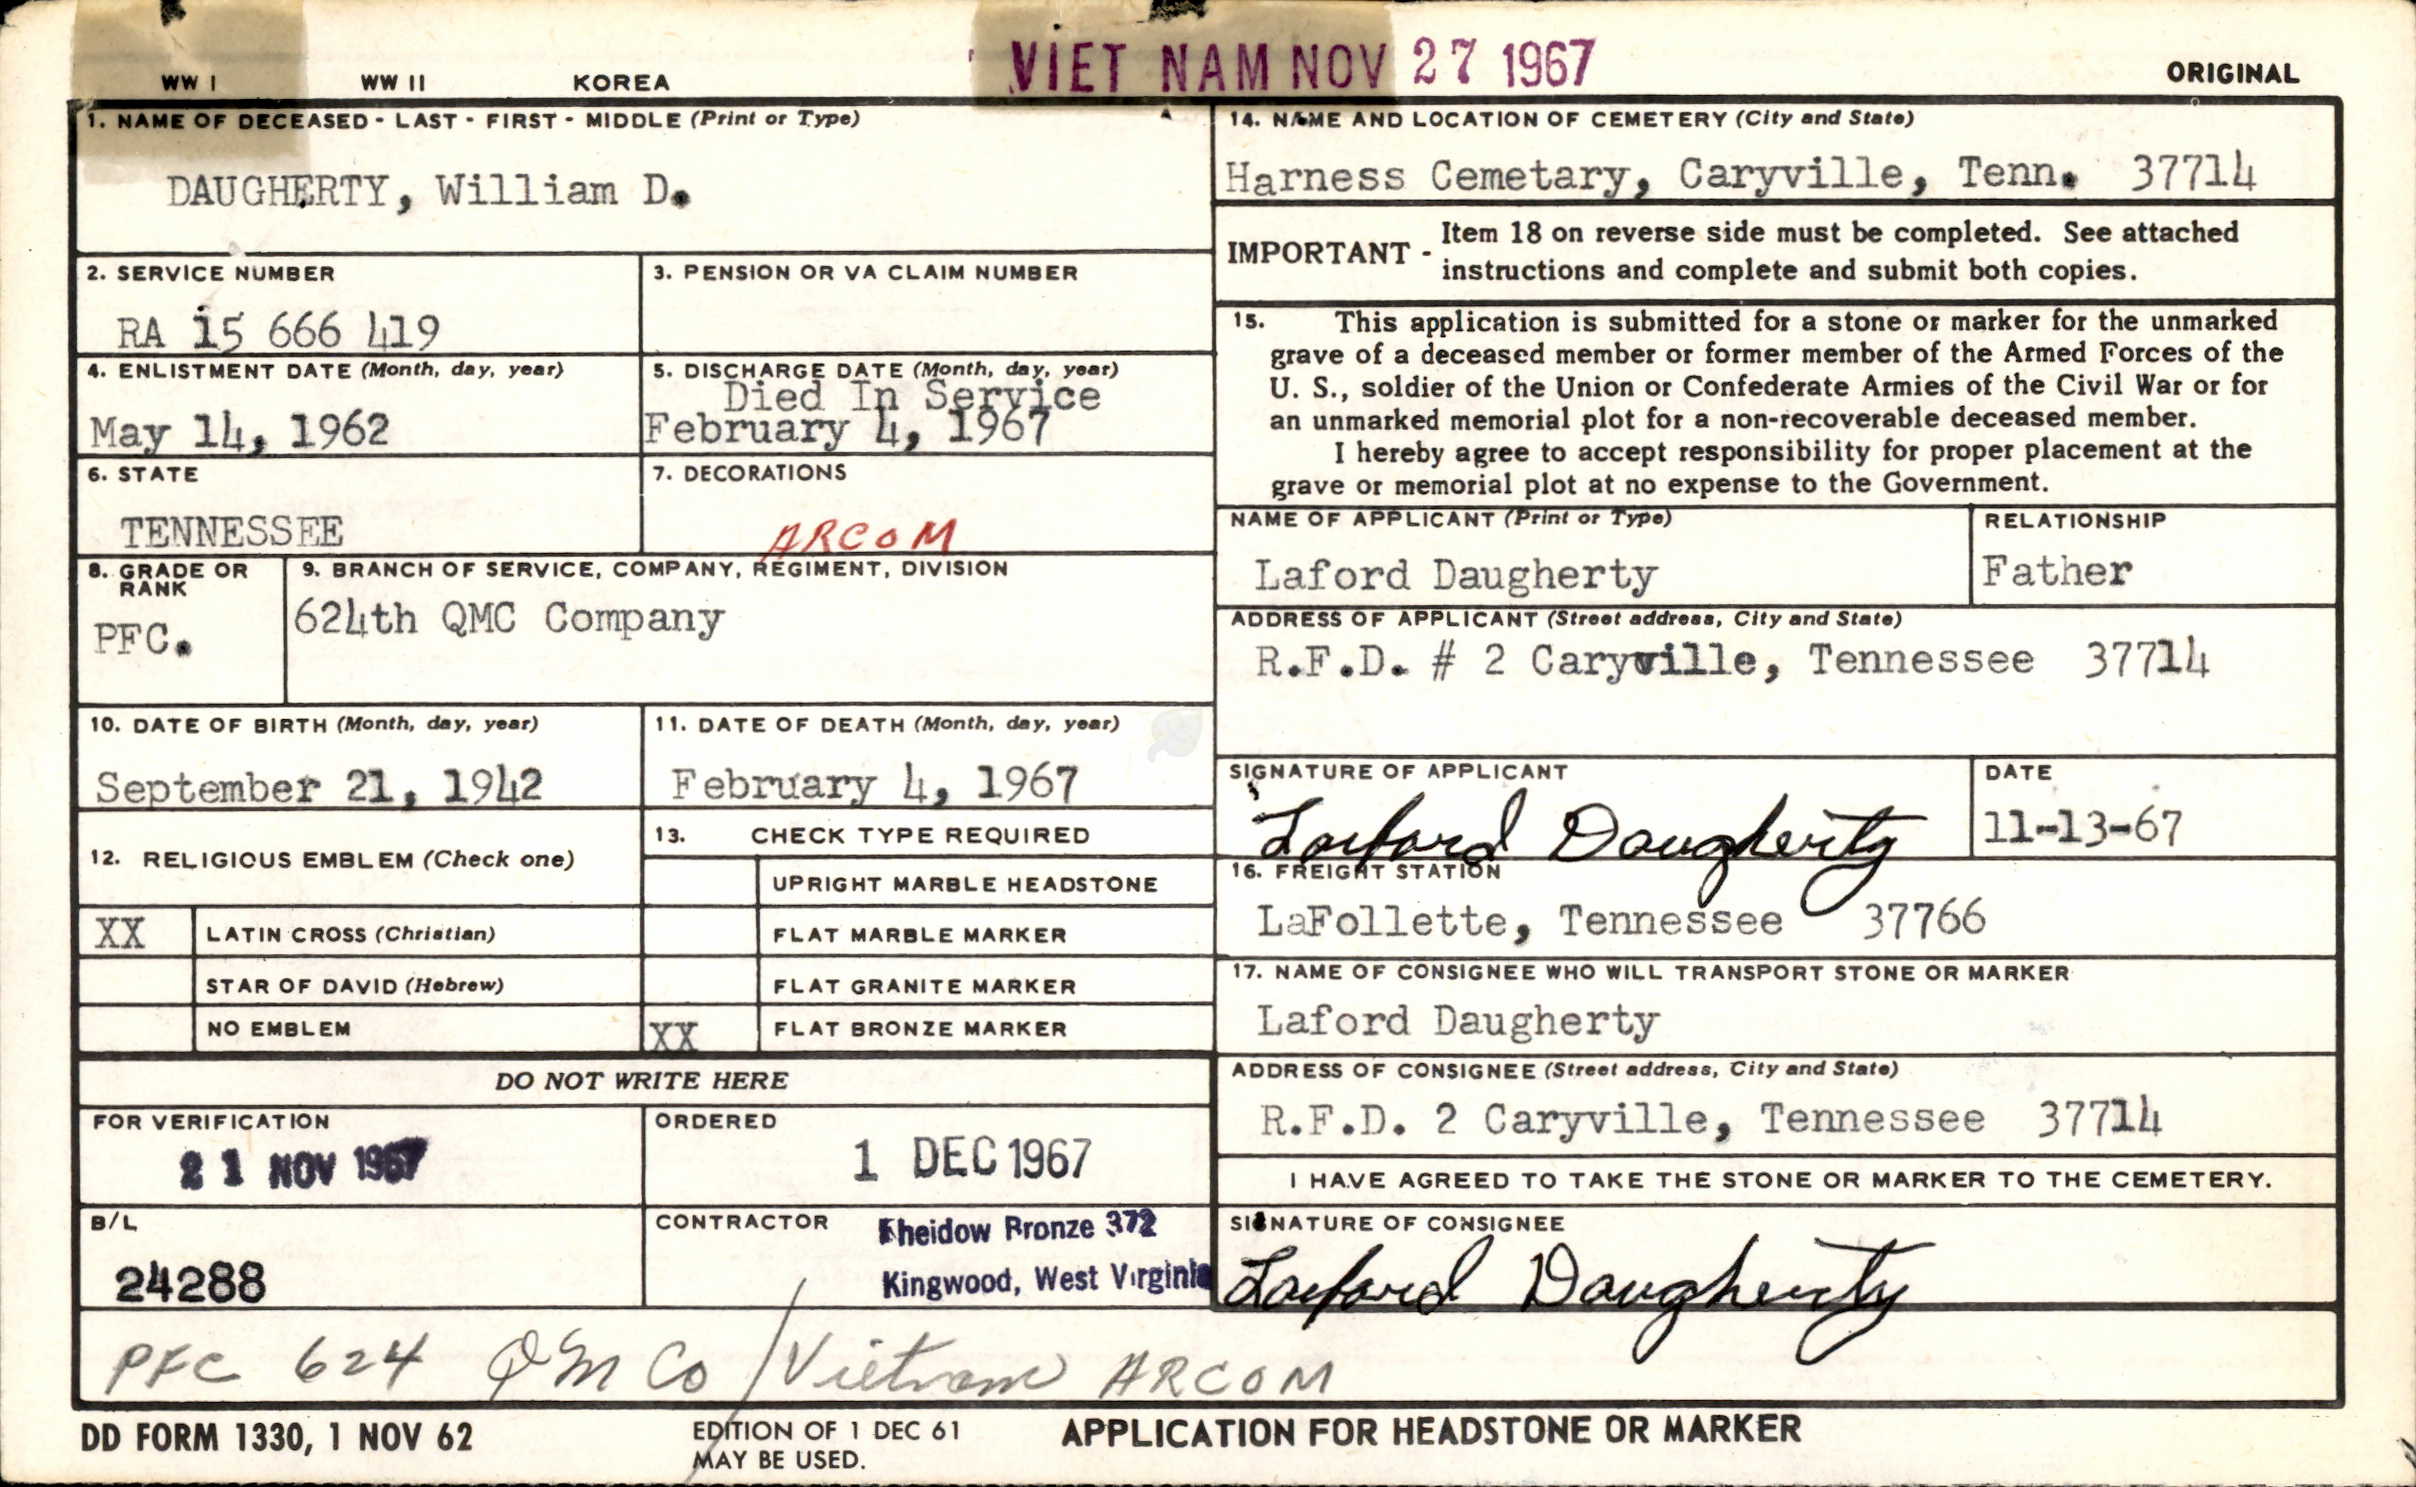 WW I WW II KOREA VIET NAM NOV 27 1967 ORIGINAL
1. NAME OF DECEASED - LAST - FIRST - MIDDLE (Print or Type)
DAUGHERTY, William D.
2. SERVICE NUMBER
RA 15 666 419
3. PENSION OR VA CLAIM NUMBER
4. ENLISTMENT DATE (Month, day, year)
May 14, 1962
5. DISCHARGE DATE (Month, day, year)
Died In Service
February 4, 1967
6. STATE
TENNESSEE
7. DECORATIONS
ARCOM
8. GRADE OR
RANK
PFC.
9. BRANCH OF SERVICE, COMPANY, REGIMENT, DIVISION
624th QMC Company
10. DATE OF BIRTH (Month, day, year)
September 21, 1942
11. DATE OF DEATH (Month, day, year)
February 4, 1967
12. RELIGIOUS EMBLEM (Check one)
XX LATIN CROSS (Christian)
STAR OF DAVID (Hebrew)
NO EMBLEM
13. CHECK TYPE REQUIRED
UPRIGHT MARBLE HEADSTONE
FLAT MARBLE MARKER
FLAT GRANITE MARKER
XX FLAT BRONZE MARKER
DO NOT WRITE HERE
FOR VERIFICATION
21 NOV 1967
ORDERED
1 DEC 1967
B/L
24288
CONTRACTOR
Bronze 372
Kingwood, West Virginia
14. NAME AND LOCATION OF CEMETERY (City and State)
Harness Cemetary, Caryville, Tenn. 37714
IMPORTANT - Item 18 on reverse side must be completed. See attached
instructions and complete and submit both copies.
15. This application is submitted for a stone or marker for the unmarked
grave of a deceased member or former member of the Armed Forces of the
U. S., soldier of the Union or Confederate Armies of the Civil War or for
an unmarked memorial plot for a non-recoverable deceased member.
I hereby agree to accept responsibility for proper placement at the
grave or memorial plot at no expense to the Government.
NAME OF APPLICANT (Print or Type)
Laford Daugherty
RELATIONSHIP
Father
ADDRESS OF APPLICANT (Street address, City and State)
R.F.D. # 2 Caryville, Tennessee 37714
SIGNATURE OF APPLICANT
Laford Daugherty
DATE
11-13-67
16. FREIGHT STATION
LaFollette, Tennessee 37766
17. NAME OF CONSIGNEE WHO WILL TRANSPORT STONE OR MARKER
Laford Daugherty
ADDRESS OF CONSIGNEE (Street address, City and State)
R.F.D. 2 Caryville, Tennessee 37714
I HAVE AGREED TO TAKE THE STONE OR MARKER TO THE CEMETERY.
SIGNATURE OF CONSIGNEE
Laford Daugherty
PFC 624 QM Co / Vietnam ARCOM
DD FORM 1330, 1 NOV 62
EDITION OF 1 DEC 61
MAY BE USED.
APPLICATION FOR HEADSTONE OR MARKER